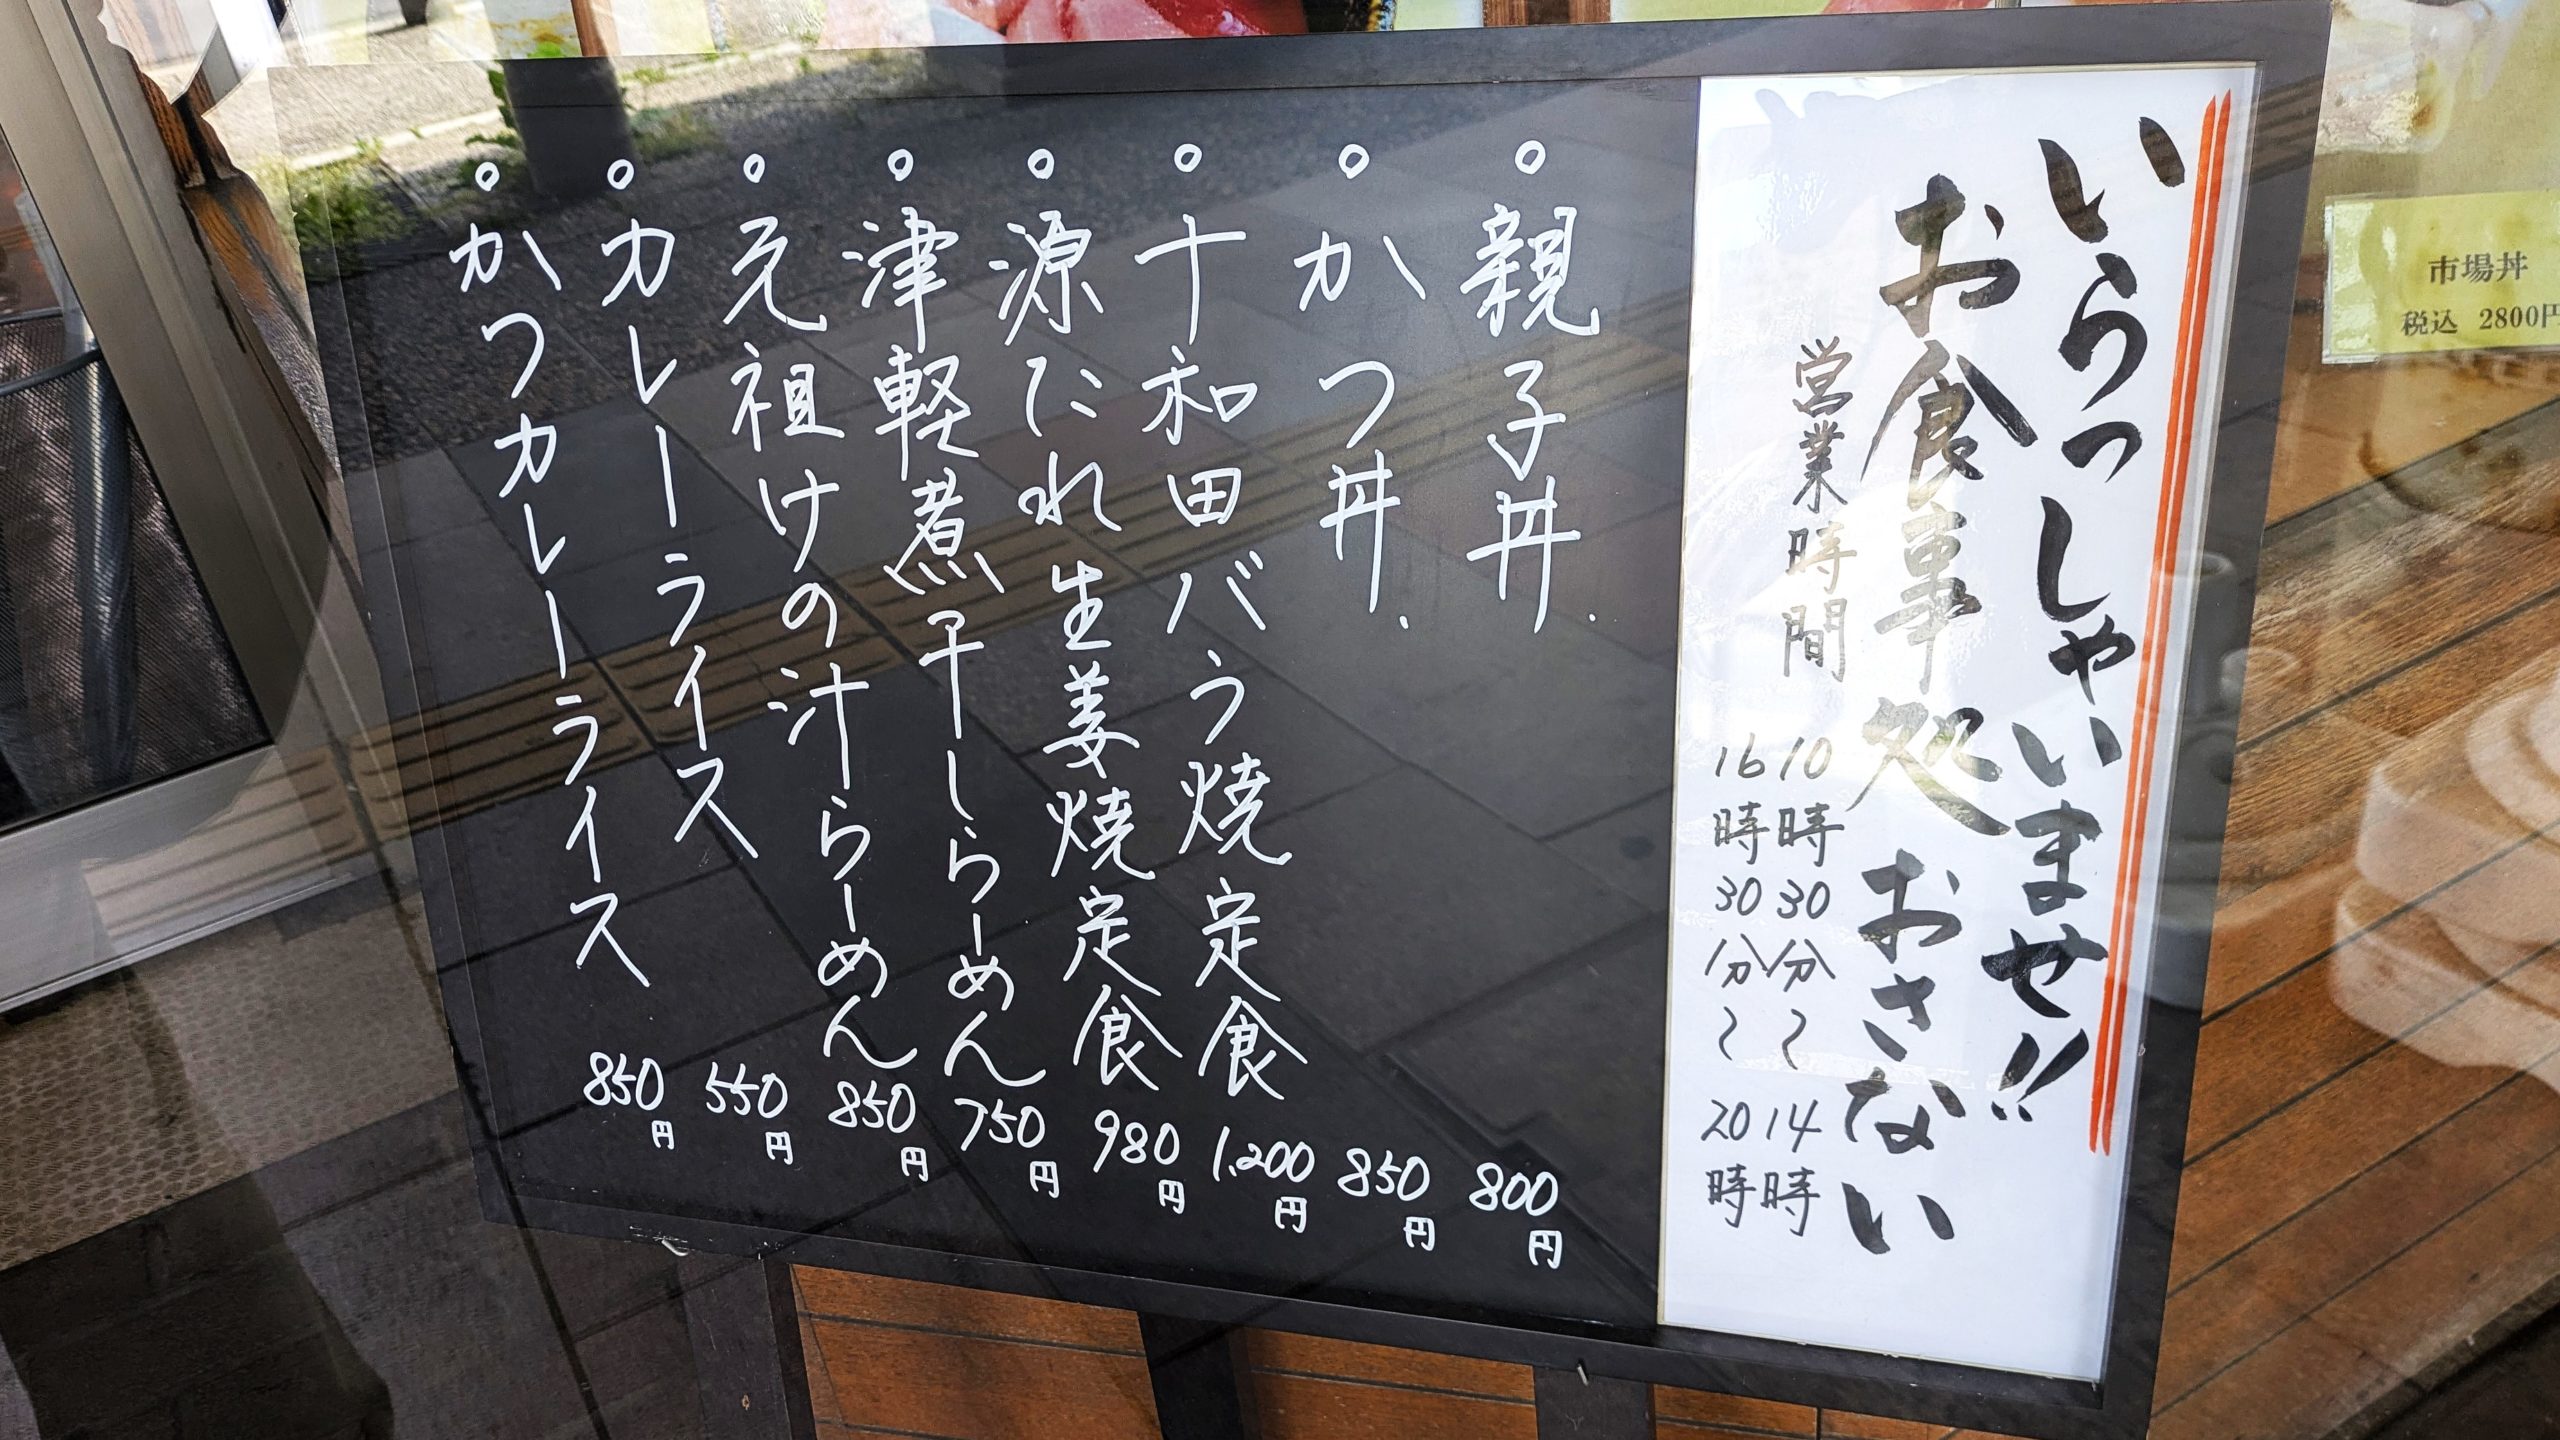 いらっしゃいませ!!
お食事処 おさない
営業時間
10時30分〜14時
16時30分〜20時
。親子丼. 800円
。かつ丼. 850円
。十和田バラ焼定食 1,200円
。源たれ生姜焼定食 980円
。津軽煮干しらーめん 750円
。元祖けの汁らーめん 850円
。カレーライス 550円
。かつカレーライス 850円
市場丼
税込 2800円